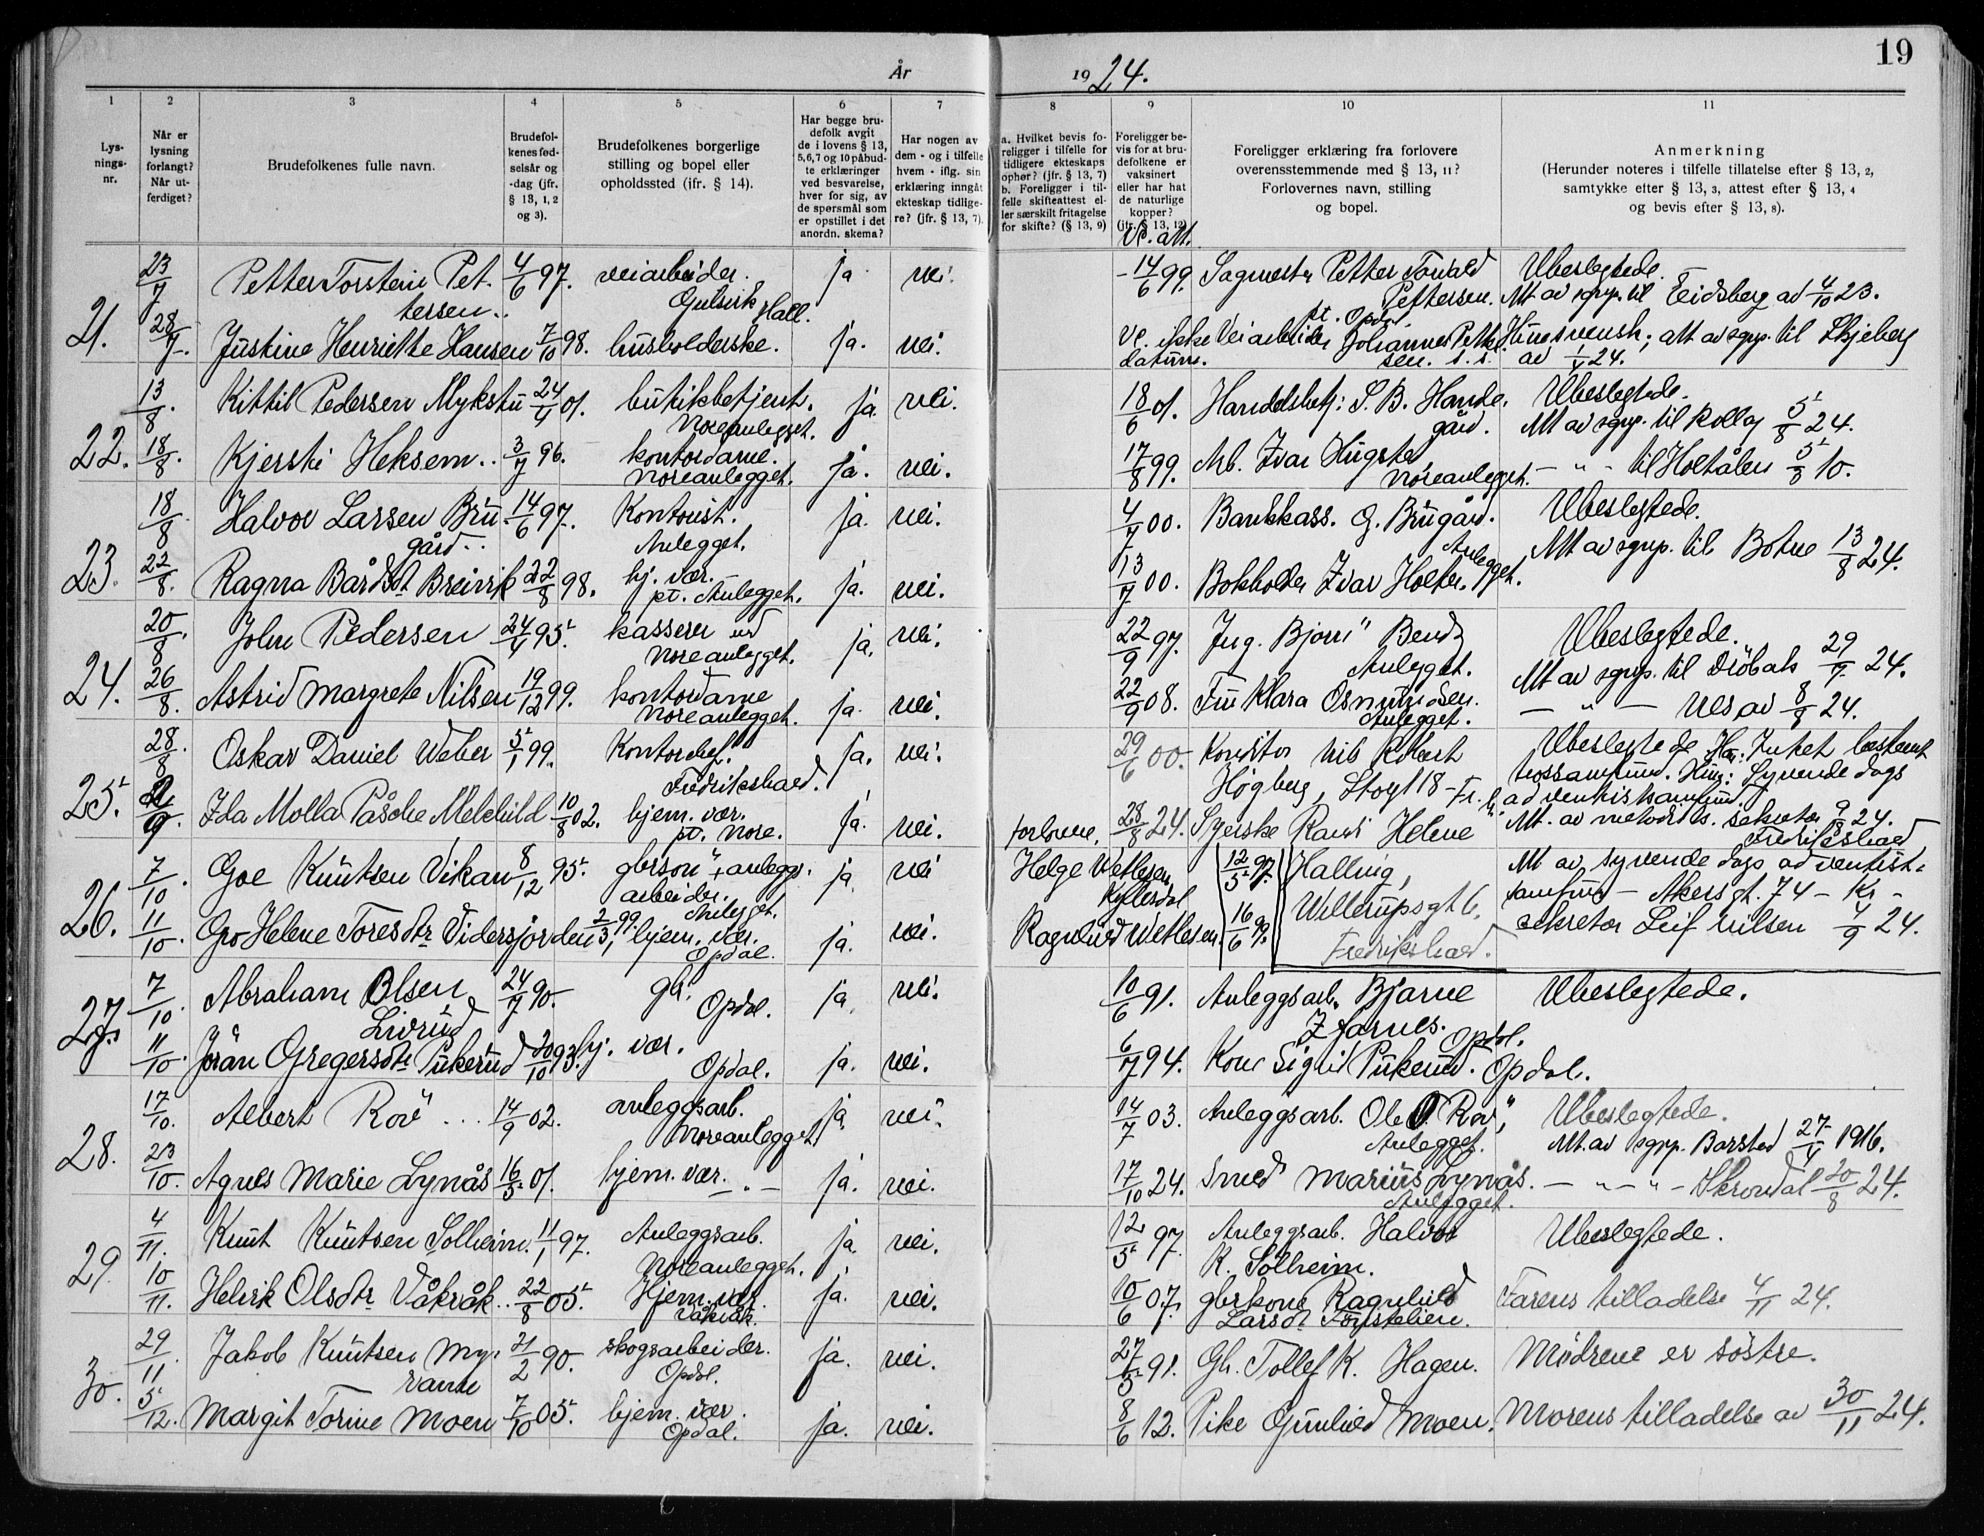 År 1924.
19
1
2
3
4
5
6
7
8
9
10
11
Lys-
nings-
nr.
Når er
lysning
forlangt?
Når ut-
ferdiget?
Brudefolkenes fulle navn.
Brudefol-
kenes fød-
selsår og
-dag (jfr.
§ 13, 1, 2
og 3).
Brudefolkenes borgerlige
stilling og bopel eller
opholdssted (ifr. § 14).
Har begge bru-
defolk avgit
de i lovens § 13,
5,6,7 og 10 påbud-
te erklæringer
ved besvarelse,
hver for sig, av
de spørsmål som
er opstillet i det
anordn. skema?
Har nogen av
dem - og i tilfelle
hvem - iflg. sin
erklæring inngåt
ekteskap tidlige-
re? (jfr. § 13, 7).
a. Hvilket bevis fo-
religger i tilfelle for
tidligere ekteskaps
ophør? (jfr. § 13, 7)
b. Foreligger i til-
felle skifteattest el-
ler særskilt fritagelse
for skifte? (§ 13, 9)
Foreligger be-
vis for at bru-
defolkene er
vaksinert
eller har hat
de naturlige
kopper?
(jfr. § 13, 12)
Foreligger erklæring fra forlovere
overensstemmende med § 13, 11?
Forlovernes navn, stilling
og bopel.
Anmerkning
(Herunder noteres i tilfelle tillatelse efter § 13, 2,
samtykke efter § 13, 3, attest efter § 13, 4
og bevis efter § 13, 8).
Vc. att.
21. 23/7 Petter Torstein Pet-
tersen.. 4/6 97. veiarbeider.
Gulsvik Hall. ja. nei. 14/6 99. Sagmestr Petter Torvald
Pettersen. Ubeslegtede.
Att av sgnp. til Eidsberg av 4/10 23.
28/7. Justine Henriette Hansen 7/10 98. husholderske. ja. nei. Vc. ikke
datum. pt. Opdal
Veiarbeider Johannes Petter-
sen. s. s. Hun svensk; att av sgnp. til Skjeberg
av 24.
22. 13/8. Kittil Pedersen Mykstu 24/4 01. butikbetjent.
Noreanlegget. ja. nei. 18/6 01. Handelsbetj: S. B. Hande-
gård. Ubeslegtede.
Att av sgnp. til Rollag 5/8 24.
18/8. Kjersti Heksem.. 3/7 96. kontordame.
Noreanlegget. ja. nei. 17/8 99. Arb. Ivar Hugstad
Noreanlegget. — " - til Holtålen 5/8 10.
23. 18/8 Halvor Larsen Bru-
gård.. 14/6 97. Kontorist.
Anlegget. ja. nei. 4/7 00. Bankkass. G. Brugård.
Anlegget. Ubeslegtede.
Att av sgnp. til Botne 13/8 24.
22/8. Ragna Bårdsdt Breivik 22/8 98. hj. vær.
pt. Anlegget. ja. nei. 13/7 00. Bokholder Ivar Holter.
24. 20/8. John Pedersen 24/4 95. kasserer ved
Noreanlegget. ja. nei. 22/9 97. Ing. Bjørn Bendz
Anlegget. Ubeslegtede.
Att av sgnp. til Drøbak 29/7 24.
26/8. Astrid Margrete Nilsen 19/12 99. kontordame
Noreanlegget. ja. nei. 22/9 08. Fru Klara Osmundsen.
Anlegget. — " — Nes av 8/8 24.
25. 28/8. Oskar Daniel Weber 5/1 99. Kontorchef.
Fredrikshald. ja. nei. 29/6 00. Konditor Nils Robert
Høgberg, Storgt 18 - Fr.h. Ubeslegtede Han: Intet bestemt
trossamfund. Hun: Syvende dags
adventistsamfund.
2/9. Ida Molla Pasche Melchild 10/8 02. hjem. vær.
pt. Nore. ja. nei. forlovere. 28/8 24. Syerske Randi Helene
Halling,
Willerupsgt 6.
Fredrikshald. Att. av metodistk. sekretær 9/8 24.
Fredrikshald
Att av syvende dags adventist-
samfund — Akersgt. 74 — Kr. -
sekretær Leif Nilsen 4/9 24.
26. 7/10. Goe Knutsen Vikan 8/12 95. gbrsøn, anleggs-
arbeider.
Anlegget. ja. nei Helge Vetlesen
Kyllesdal 12/5 97.
11/10. Gro Helene Toresdtr Vidersjorden 2/3 99. hjem. vær.
Opdal. ja. nei. Ragnhild Vetlesen. 16/6 99.
27. 7/10 Abraham Olsen
Livrud 24/7 90. gbr.
Opdal. ja. nei. 10/6 91. Anleggsarb. Bjarne
Ifarnes.
Opdal. Ubeslegtede.
11/10. Jøran Gregersdtr Pukerud 20/10 93. hj. vær.
Opdal. ja. nei. 6/7 94. Kone Sigrid Pukerud. Opdal.
28. 17/10. Albert Rov ... 14/9 02. anleggsarb.
Noreanlegget. ja. nei. 14/7 03. Anleggsarb. Ole O. Rov,
Anlegget. Ubeslegtede.
Att. av sgnp. Borstad 27/4 1916.
23/10. Agnes Marie Lynås 16/5 01. hjem. vær. — " — ja. nei. 17/10 24. Smed Marius Lynås.
Anlegget. — " — " — Skrondal 20/8 24.
29. 4/11. Knut Knutsen Solheim. 11/1 97. Anleggsarb.
Noreanlegget. ja. nei. 12/5 97. Anleggsarb. Halvor
K. Solheim. Ubeslegtede.
10/11. Helrik Olsdtr Våkråk.. 22/8 05. Hjem. vær.
Våkråk. ja. nei. 10/6 07. gbrkone Ragnhild
Larsdt. Farens tilladelse 4/11 24.
30. 29/11. Jakob Knutsen My-
rante 21/2 90. skogsarbeider.
Opdal. ja. nei. 27/5 91. Gb. Tollef K. Hagen. Mødrene er søstre.
5/12. Margit Torine Moen 7/10 05. hjem. vær.
Opdal. ja. nei. 8/6 12. Pike Gunhild Moen. Morens tilladelse av 30/11 24.